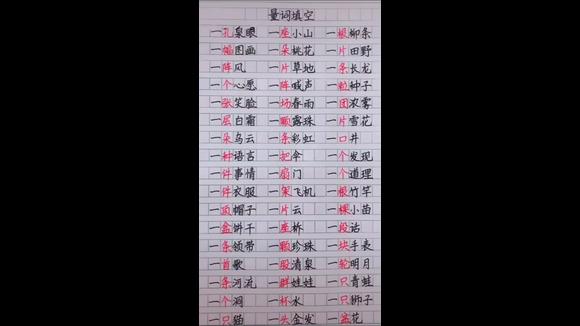 量词填空
一孔泉眼 一座小山 一根柳条
一幅图画 一朵桃花 一片田野
一阵风 一片草地 一条长龙
一个心愿 一阵喊声 一粒种子
一张笑脸 一场春雨 一团浓雾
一层白霜 一颗露珠 一片雪花
一朵乌云 一条彩虹 一口井
一种语言 一把伞 一个发现
一件事情 一扇门 一个道理
一件衣服 一架飞机 一根竹竿
一顶帽子 一片云 一棵小苗
一盒饼干 一座桥 一段话
一条领带 一颗珍珠 一块手表
一首歌 一股清泉 一轮明月
一条河流 一群娃娃 一只青蛙
一个洞 一杯水 一只狮子
一只猫 一头金发 一盆花